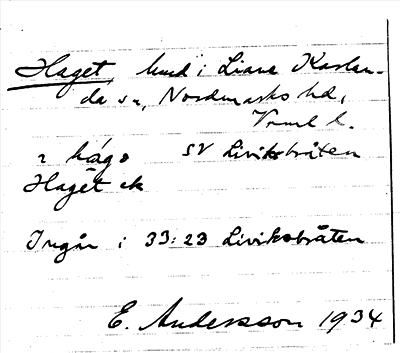 Haget, hmd i Liane Karlan-
da sn, Nordmarks hd,
Vrml l.
2 hágə SV Liviksbråten
Haget ek
Ingår i 33:23 Liviksbråten
E. Andersson 1934